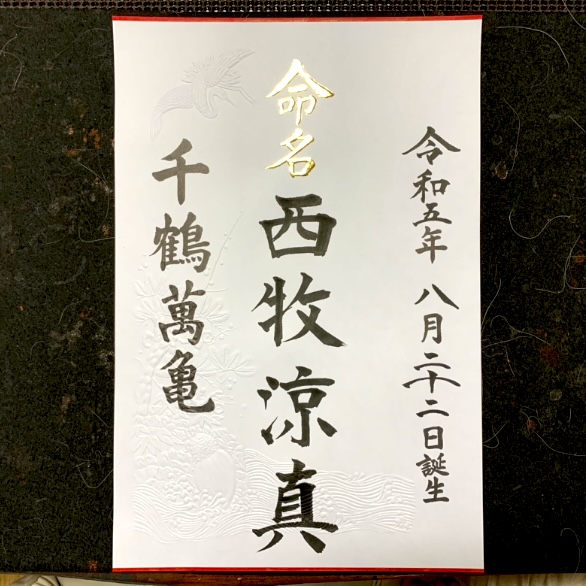 令和五年 八月二十二日誕生
命名
西牧涼真
千鶴萬亀